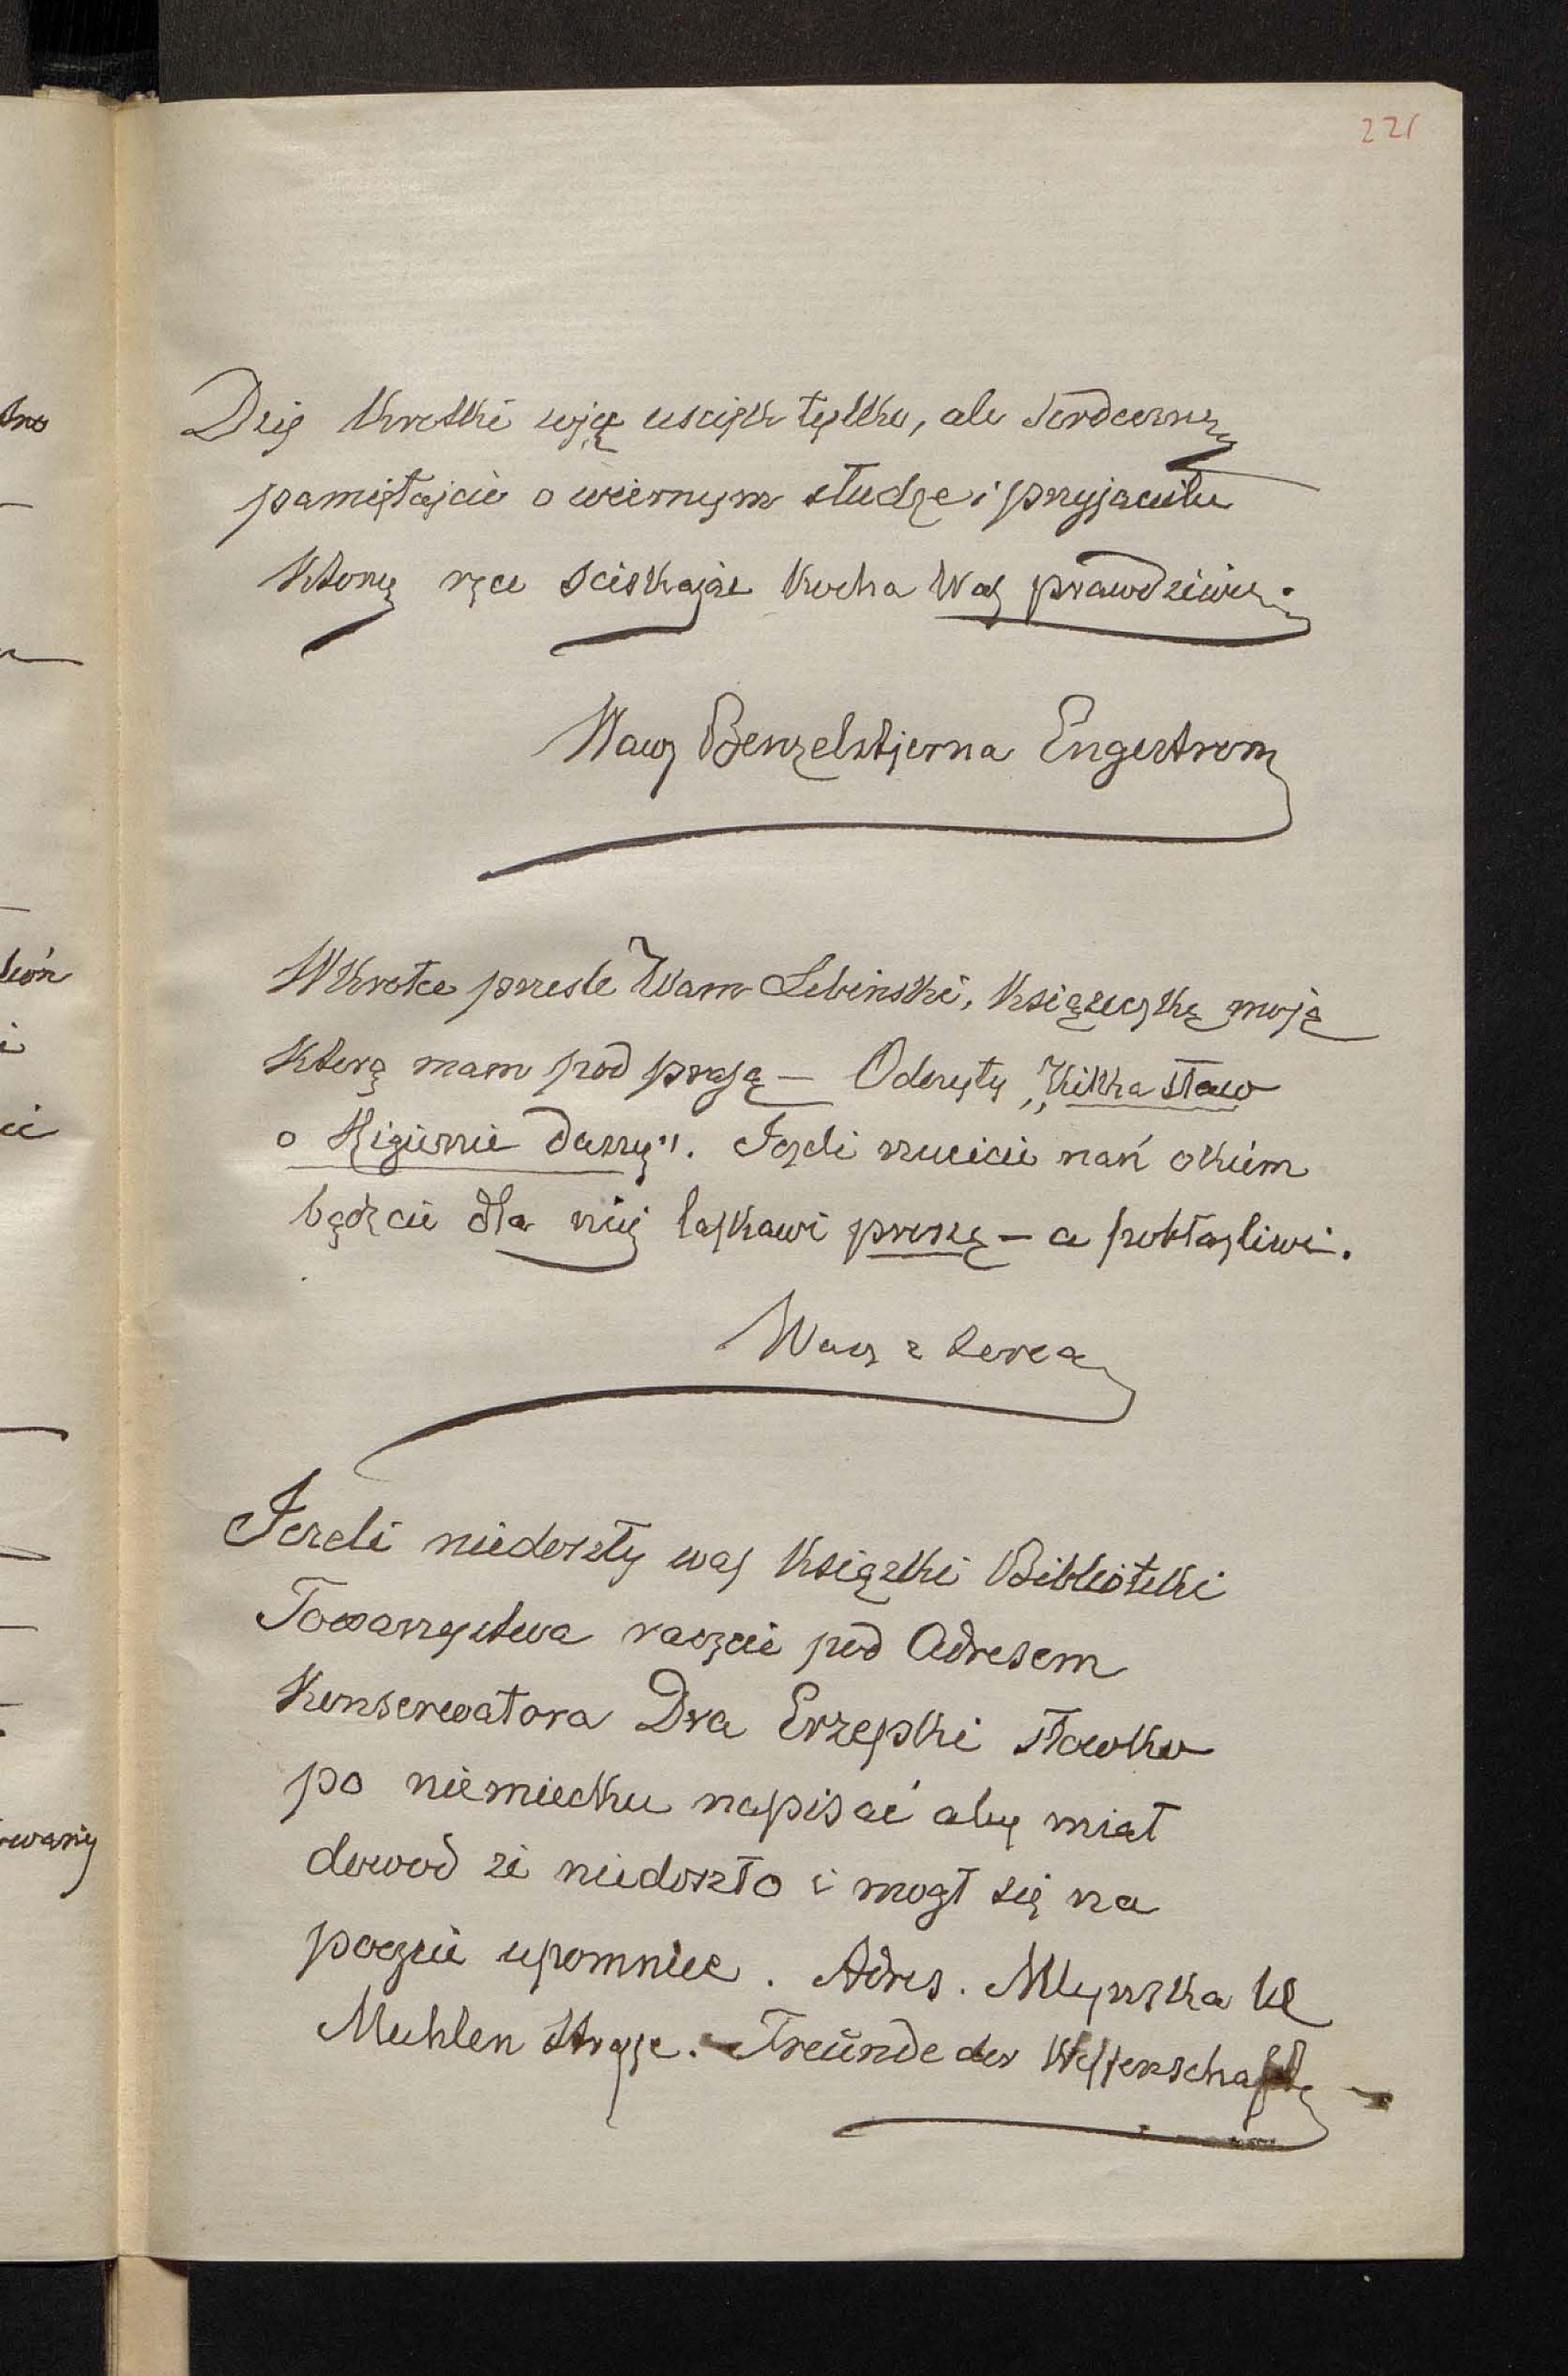 221
Dziś krotki ści uscisk tylko, ale serdeczny
pamiętajcie o wiernym słudze i przyjacielu
ktory ręce sciskając kocha Was prawdziwie.
Wasz Benzelstjerna Engestrom
Wkrotce przesle Wam Lebinski, książeczkę moją
ktorą mam pod prasą — Odczyty „Kilka słow
o Higienie duszy". Jezeli rzucicie nań okiem
bądzcie dla niej łaskawi proszę — a pobłazliwi.
Wasz z serca
Jezeli niedoszły was książki Biblioteki
Towarzystwa raczcie pod Adresem
Konserwatora Dra Erzepki słowko
po niemiecku napisać aby miał
dowod ze niedoszło i mogł się na
poczcie upomniec. Adres. Młynska ul
Muhlen Strasse. Freunde der Wissenschaft —